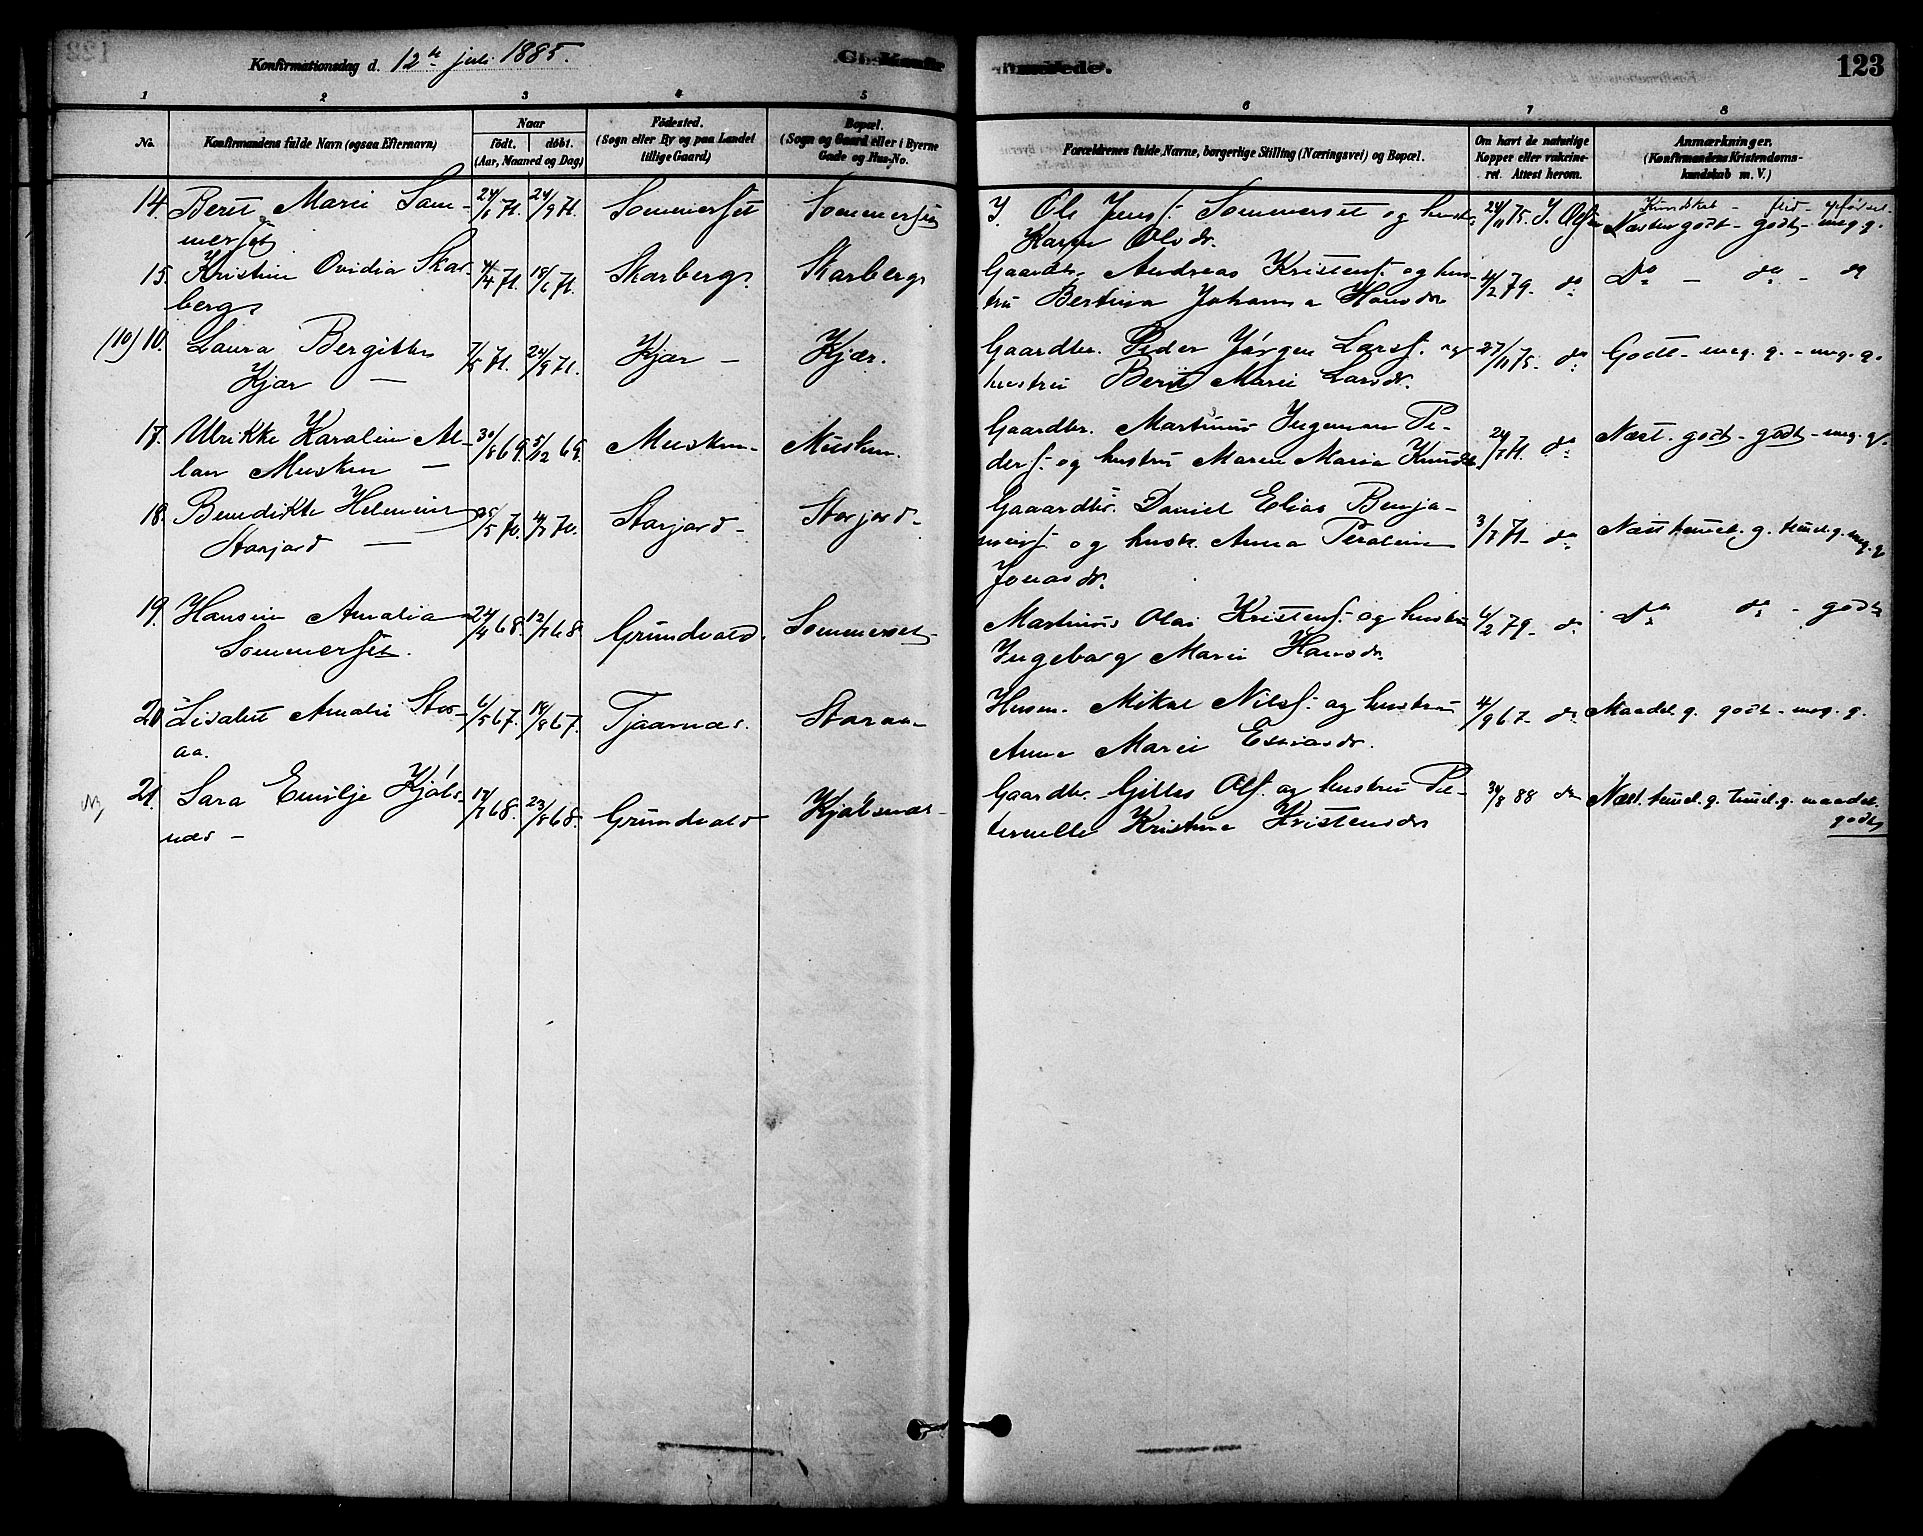 Konfirmationsdag d. 12te juli 1885.
123
1 2 3 4 5 6 7 8
No.
Konfirmandens fulde Navn (ogsaa Efternavn)
Naar
født. døbt.
(Aar, Maaned og Dag)
Fødested.
(Sogn eller By og paa Landet
tillige Gaard)
Bopæl.
(Sogn og Gaard eller i Byerne
Gade og Hus-No.
Forældrenes fulde Navne, borgerlige Stilling (Næringsvei) og Bopæl.
Om havt de naturlige
Kopper eller vakcine-
ret. Attest herom.
Anmærkninger.
(Konfirmandens Kristendoms-
kundskab m. V.)
14. Berit Marie Som- 24/6 71. 24/9 71. Sommerset Sommerset
merset
Ole Jenss. Sommerset og hustr.
Karen Olsdr.
24/11 75. J. Olsen
Kundskab - flid - opførsel
Næsten godt - godt - meg. g.
15. Kristine Ovidia Skar- 4/4 71. 18/6 71. Skarberg. Skarberg
berg
Gaardbr. Andreas Kristens. og hus-
tru Bertina Johanna Hansdr
4/2 79. do
Do - do - do
(10) 10. Laura Bergitte 7/5 71. 24/9 71. Kjær - Kjær.
Kjær -
Gaardbr. Peder Jørgen Larss. og
hustru Berit Marie Larsdr.
27/11 75. do
Godt - meg. g. - meg. g.
17. Ulrikke Karoline Al- 30/8 69. 5/12 69. Musken - Musken.
lan Musken -
Gaardbr. Martinus Ingeman Pe-
ders. og hustru Maren Maria Knudsd.
24/7 71. do
Næst. godt - godt - meg. g.
18. Benedikte Helmine 25/5 70. 4/7 70. Storjord - Storjord -
Storjord -
Gaaardbr. Daniel Elias Benja-
mins. og hustr. Anna Peroline
Jonasdr.
3/7 71 - do
Næst temel. g. temel. g. meg. g.
19. Hansine Amalia 24/4 68. 12/7 68. Grundvald. Sommerset -
Sommerset.
Martinus Olai Kristens. og hustru
Ingeborg Marie Hansdr.
6/2 79. do
Do do - godt
20. Lisabet Amalie Stor- 6/5 67. 18/8 67. Tjaarnes. Storaa -
aa.
Husm. Mikal Nilss. og hustru
Anne Marie Esaiasdr.
4/9 67 - do
Maadel. g. godt - meg. g.
21. Sara Emilje Kjøls- 17/7 68. 23/8 68. Grundvald Kjølsnæs -
næs -
Gaardbr. Gilles Ols. og hustru Pe-
ternelle Kristine Kristensdr
30/8 88 do
Næst. temel. g. temel. g. maadel.
godt